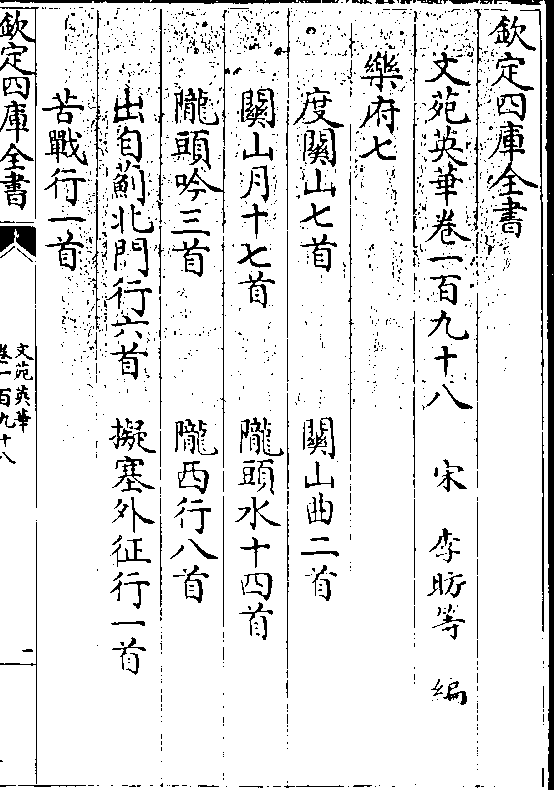 欽定四庫全書
文苑英華卷一百九十八　宋　李昉等　編
樂府七
度關山七首　關山曲二首
關山月十七首　隴頭水十四首
隴頭吟三首　隴西行八首
出自薊北門行六首　擬塞外征行一首
苦戰行一首
欽定四庫全書
文苑英華
卷一百九十八